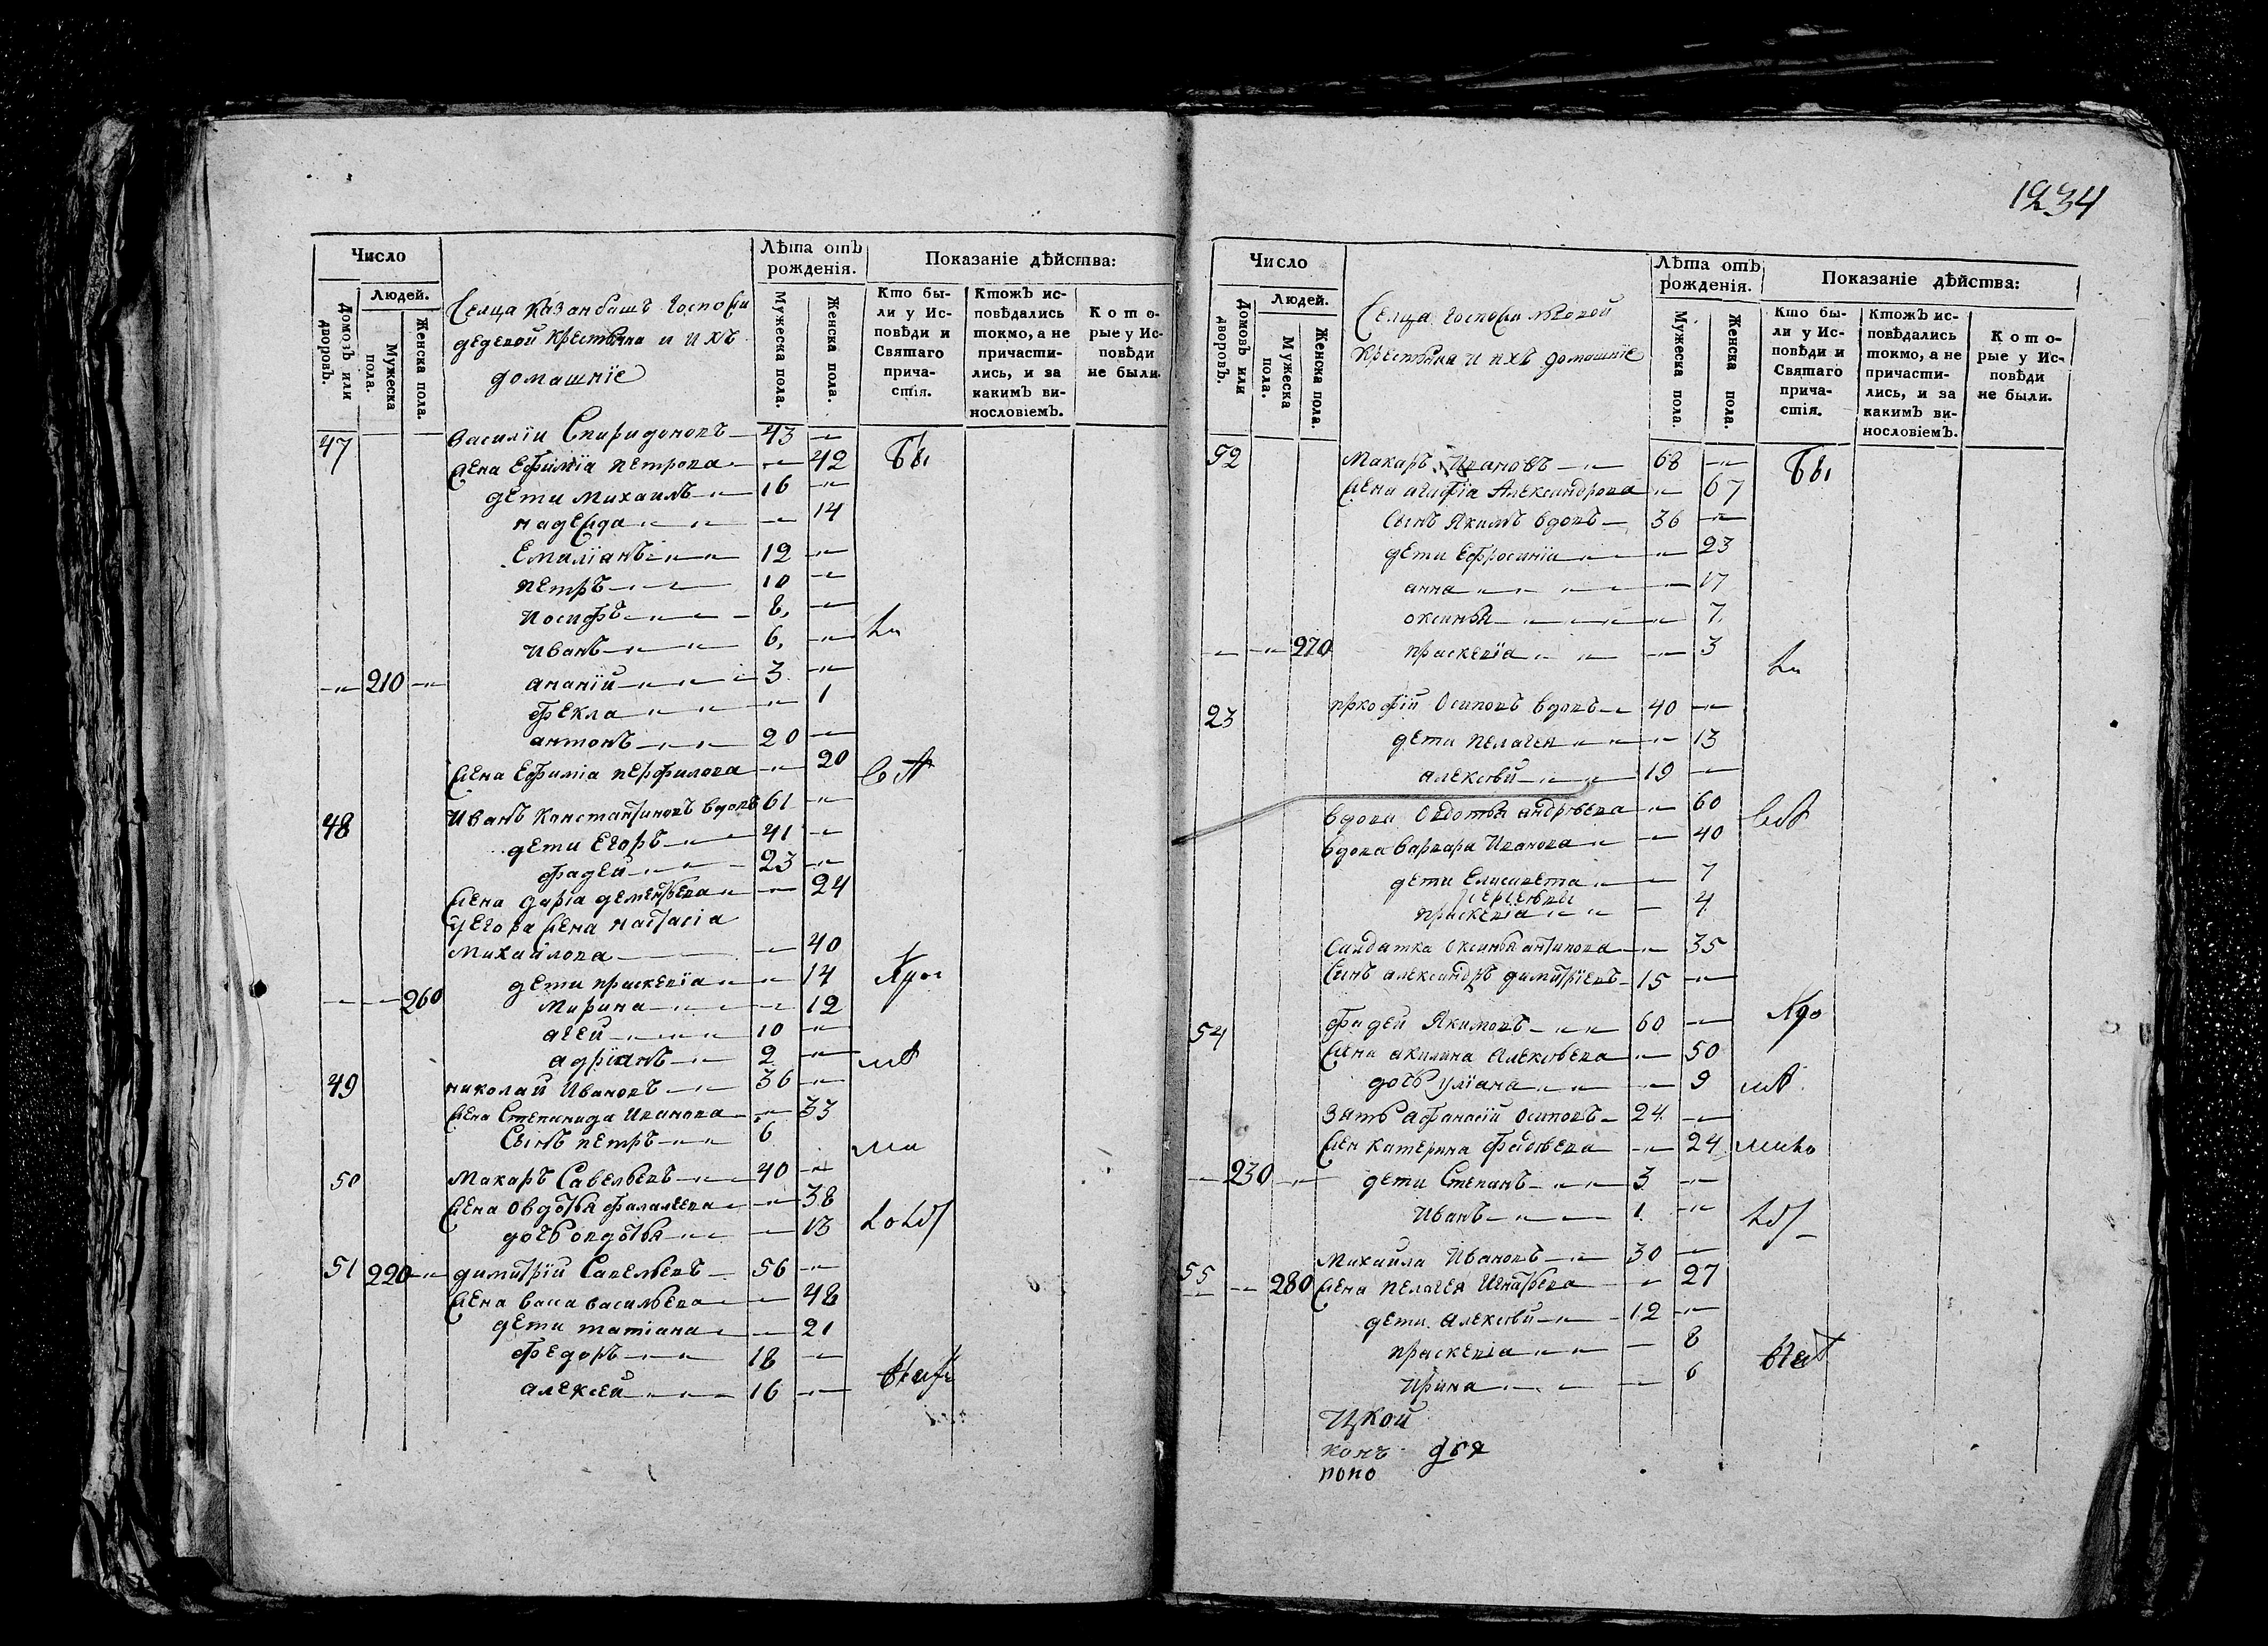 1234
Число
Лѣта отъ рожденія.
Показаніе дѣйства:
Людей.
Домовъ или дворовъ.
Мужеска пола.
Женска пола.
Селца Казанбашъ Госпожи
крестьяна и ихъ
домашніе
Мужеска пола.
Женска пола.
Кто бы-
ли у Ис-
повѣди и
Святаго
прича-
стія.
Ктожъ ис-
повѣдались
токмо, а не
причасти-
лись, и за
какимъ ви-
нословіемъ.
Кото-
рые у Ис-
повѣди
не были.
47 Василіи Спиридоновъ 43
Жена Ефимія петрова 42 Бы
дети михаилъ 16
надежда 14
Емиліанъ 12
петръ 10
иосифъ 8
иванъ 6
210 ананій 3
фекла 1
антонъ 20
Жена Ефиміа перфилова 20
48 Иванъ Константиновъ вдовъ 61
дети Егоръ 41
фадеи 23
Жена даріа дементьева 24
у Егора Жена настасіа
михаилова 40
дети праскевіа 14
260 марина 12
агеи 10
адріанъ 2
49 николаи Ивановъ 36
Жена Степанида Иванова 33
Сынъ петръ 6
50 Макаръ Савельевъ 40
Жена Овдотья фалалеева 38
дочь овдотья 13
51 220 димитріи Савельевъ 56
Жена васа васильева 48
дети татіана 21
федоръ 18
алексеи 16
Число
Лѣта отъ рожденія.
Показаніе дѣйства:
Людей.
Домовъ или дворовъ.
Мужеска пола.
Женска пола.
Селца Госпожи
крестьяна и ихъ домашніе
Мужеска пола.
Женска пола.
Кто бы-
ли у Ис-
повѣди и
Святаго
прича-
стія.
Ктожъ ис-
повѣдались
токмо, а не
причасти-
лись, и за
какимъ ви-
нословіемъ.
Кото-
рые у Ис-
повѣди
не были.
52 Макаръ Ивановъ 68 Бы
Жена агафіа Александрова 67
Сынъ Якимъ вдовъ 36
дети Ефросиніа 23
анна 17
оксинья 7
270 праскевіа 3
23 пркофій Осиповъ вдовъ 40
дети пелагея 13
алексѣй 19
вдова Овдотья андрѣева 60
вдова варвара Иванова 40
дети Елисавета 7
праскевіа 4
Салдатка Оксинья антипова 35
Сынъ александръ димитріевъ 15
54 фадеи Якимовъ 60
Жена акилина Алексѣева 50
дочь уліана 9
зять афанасіи осиповъ 24
Жен катерина фадѣева 24
230 дети Степанъ 3
Иванъ 1
Михаила Ивановъ 30
55 280 Жена пелагея Игнатьева 27
дети Алексѣй 12
праскевіа 8
Ирина 6